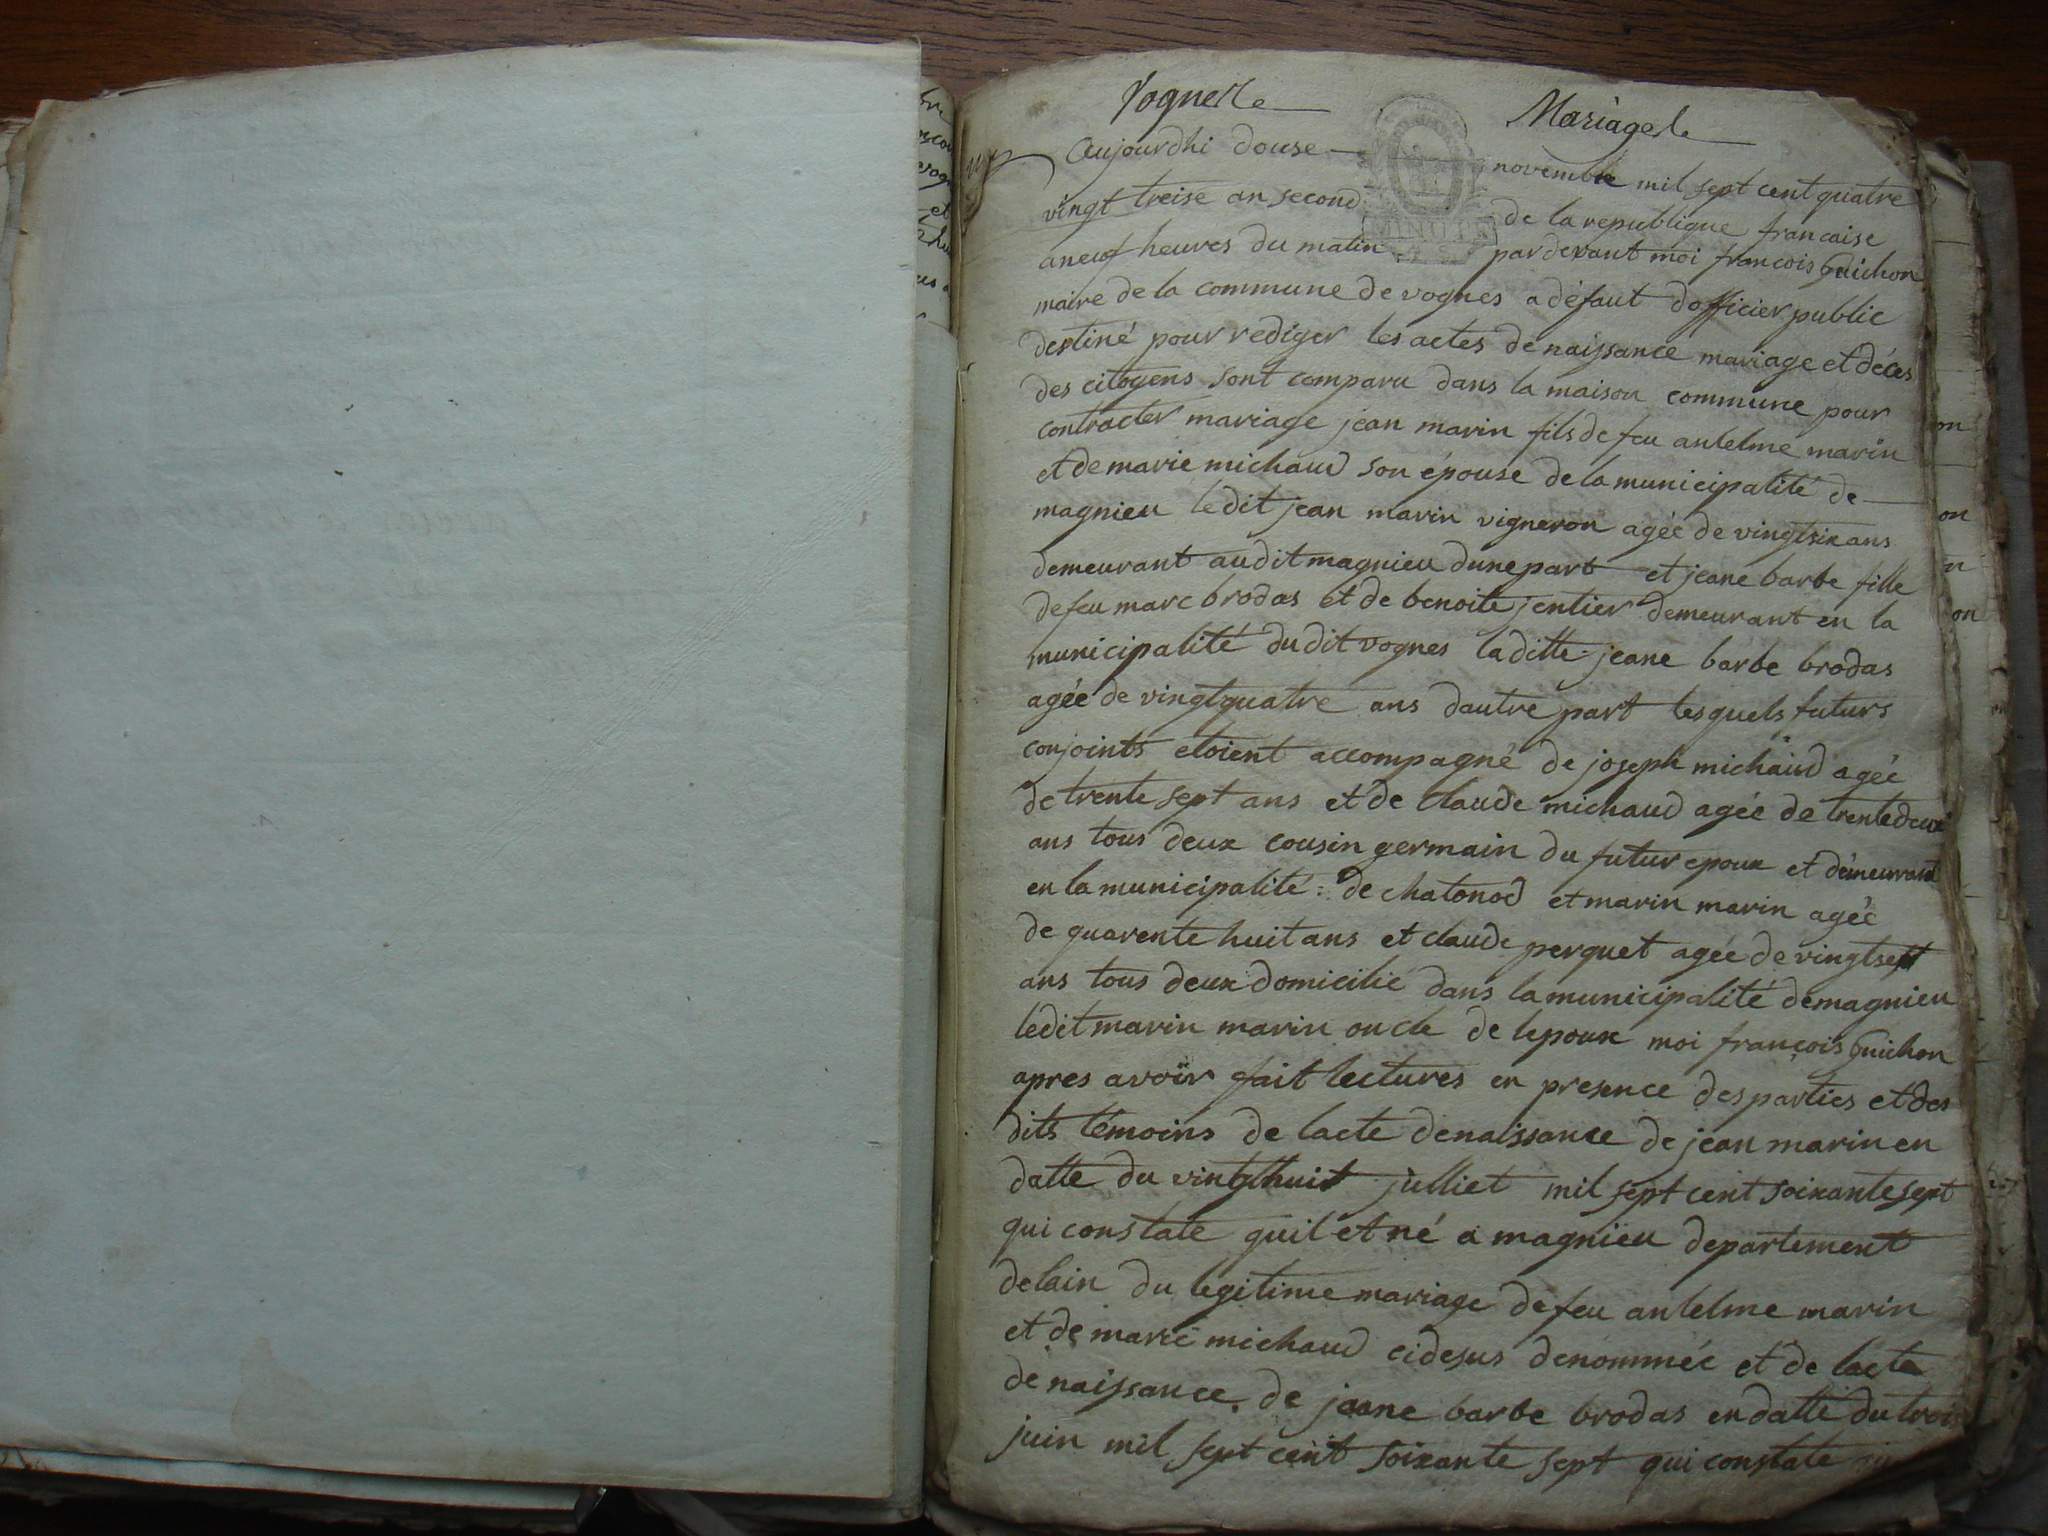 Vognes
Mariages
Aujourdhi douse novembre mil sept cent quatre
vingt treise an second de la republique francaise
a neuf heures du matin par devant moi francois Guichon
maire de la commune de vognes a défaut dofficier public
destiné pour rediger les actes de naissance mariage et déces
des citoyens sont comparu dans la maison commune pour
contracter mariage jean marin fils de feu antelme marin
et de marie michaud son épouse de la municipalité de
magnieu ledit jean marin vigneron agée de vingt six ans
demeurant audit magnieu dune part et jeane barbe fille
de feu marc brodas et de benoite jentier demeurant en la
municipalité dudit vognes laditte jeane barbe brodas
agée de vingt quatre ans dautre part lesquels futurs
conjoints etoient accompagné de joseph michaud agée
de trente sept ans et de claude michaud agée de trente deux
ans tous deux cousin germain du futur epoux et démeurant
en la municipalité de chatonod et marin marin agée
de quarente huit ans et claude perquet agée de vingt sept
ans tous deux domicilié dans la municipalité de magnieu
ledit marin marin oncle de lepoux moi françois Guichon
apres avoïr fait lectures en presence des parties et des
dits témoins de lacte de naissance de jean marin en
datte du vingt huit julliet mil sept cent soixante sept
qui constate quil et né a magnïeu departement
de lain du legitime mariage de feu antelme marin
et de marie michaud cidesus denommée et de lacte
de naissance de jeane barbe brodas en datte du trois
juin mil sept cent soixante sept qui constate